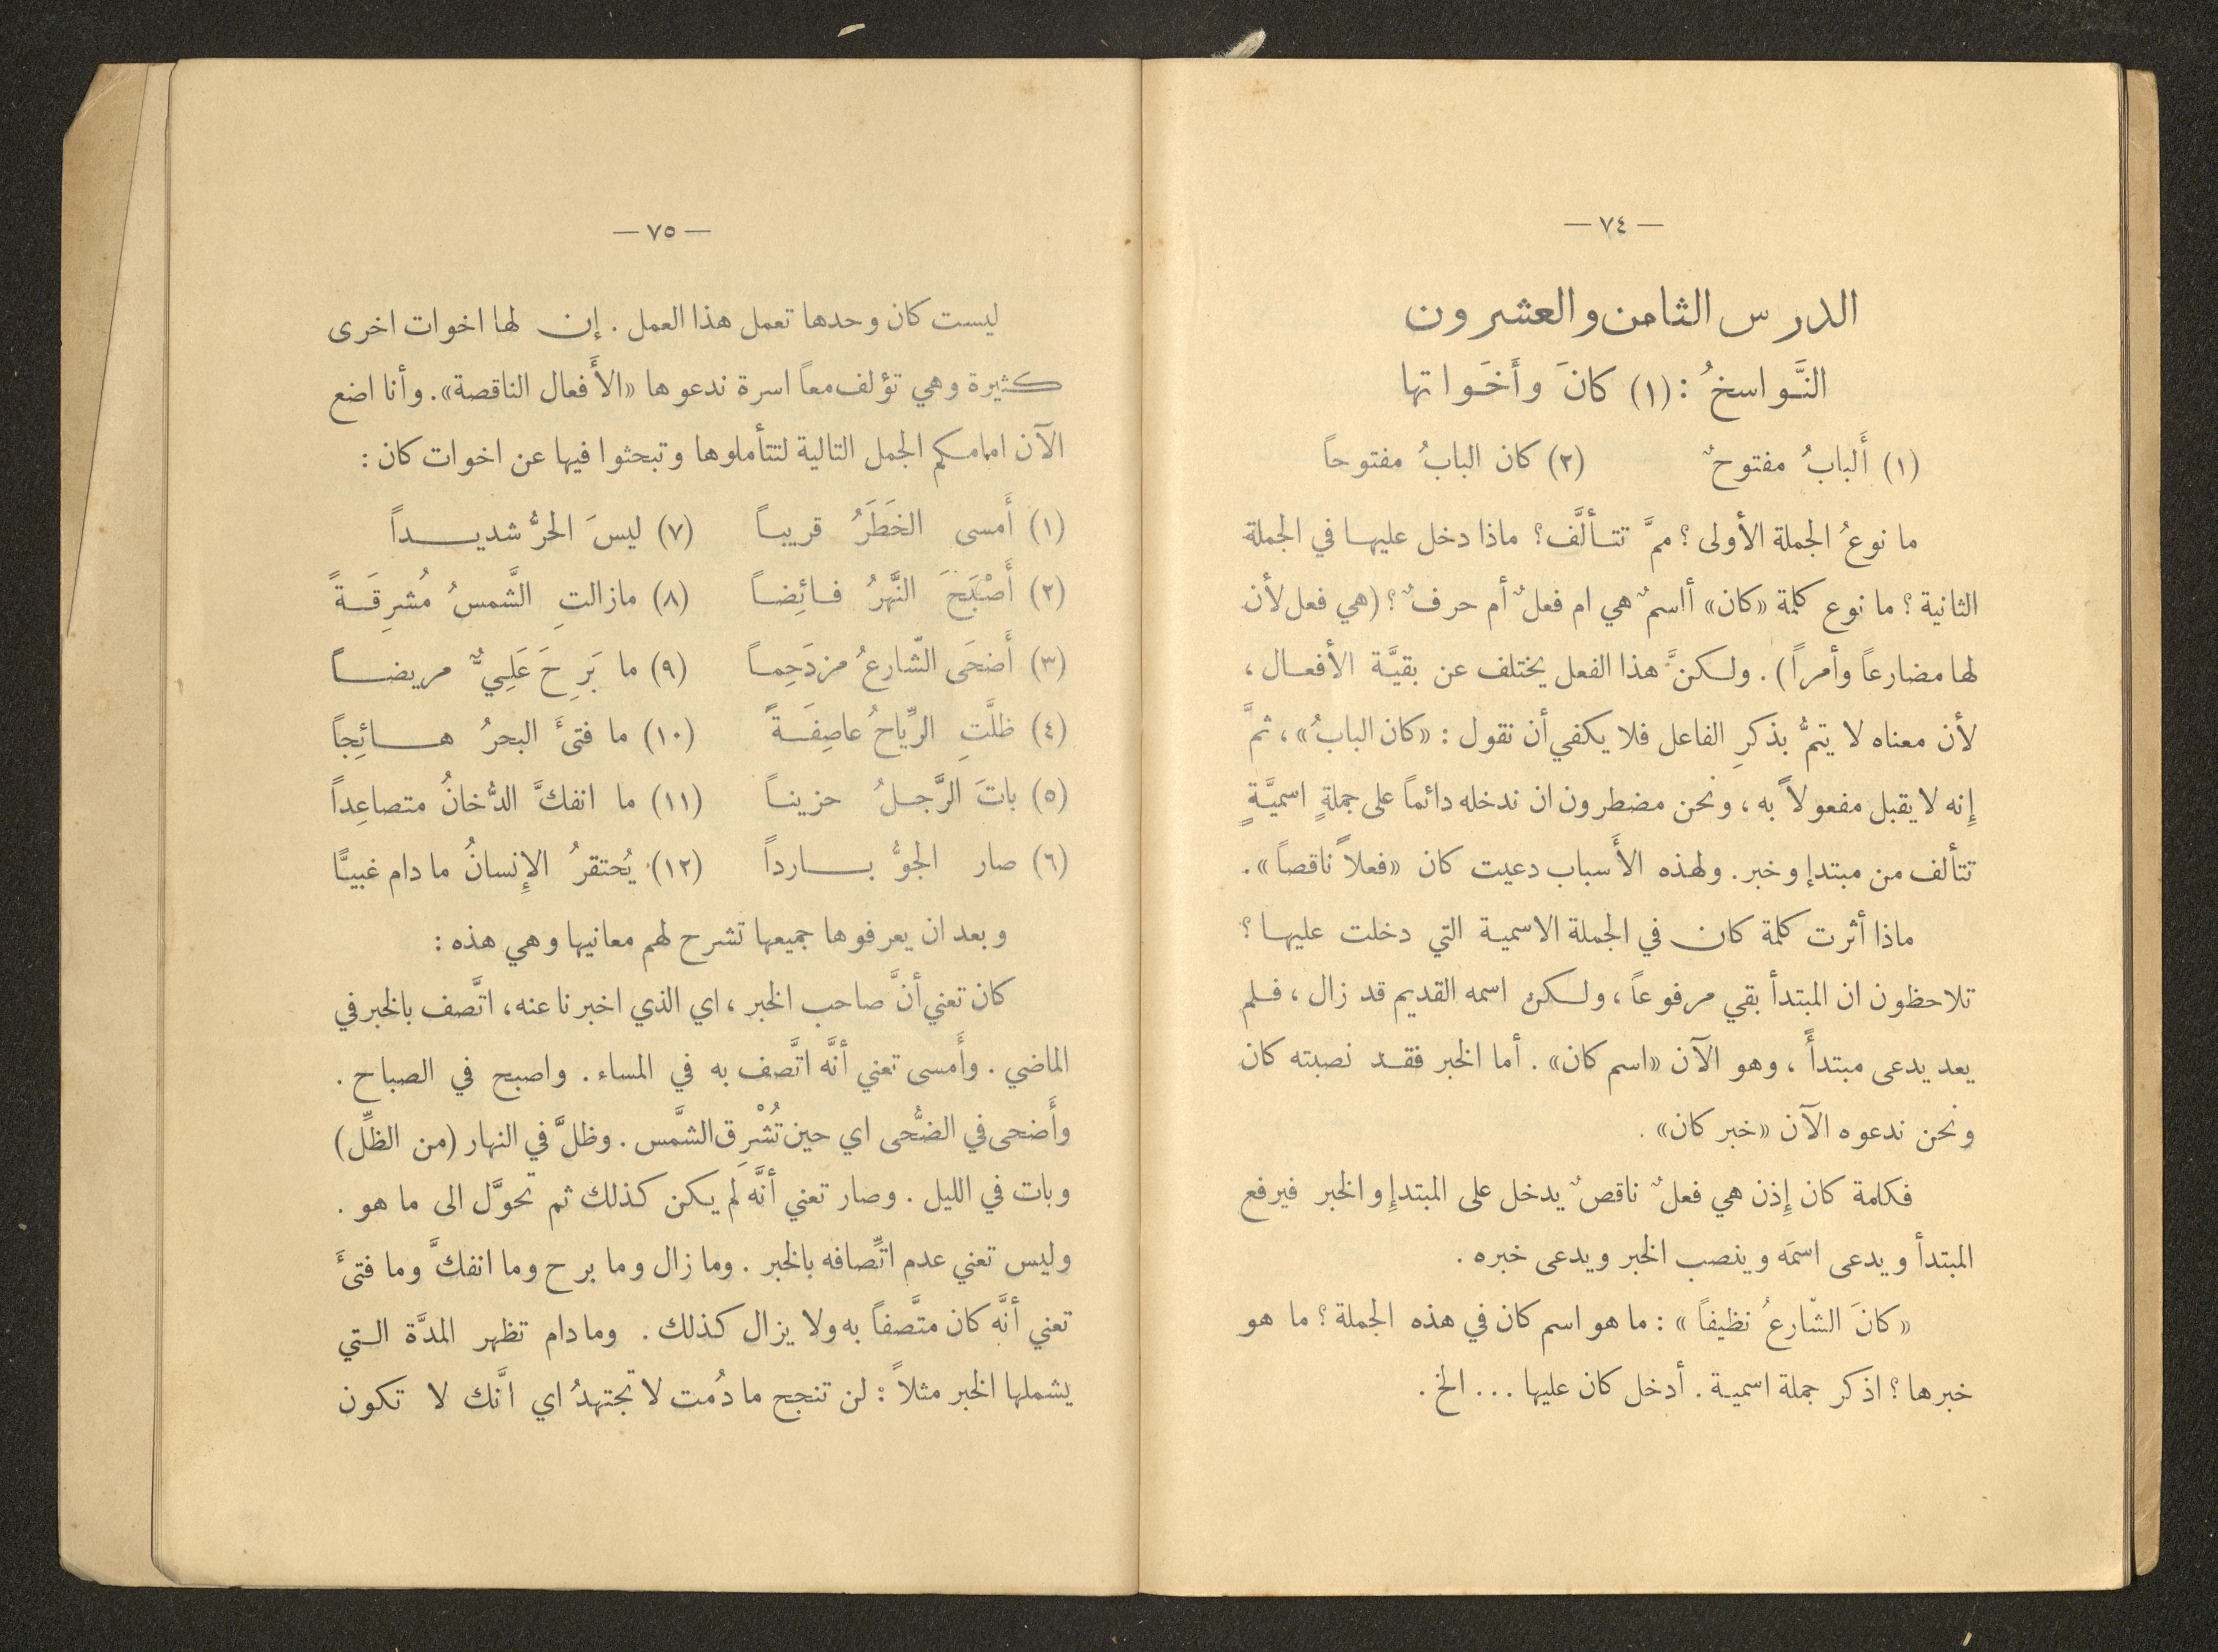 — ٧٤ —
الدرس الثامن والعشرون
النَّواسخُ : (١) كانَ وأَخَواتها
(١) أَلبابُ مفتوحٌ (٢) كان البابُ مفتوحاً
ما نوعُ الجملة الأولى ؟ ممَّ تتألَّف؟ ماذا دخل عليها في الجملة
الثانية ؟ ما نوع كلمة «كان» أاسمٌ هي ام فعلٌ أم حرفٌ ؟ (هي فعل لأن
لها مضارعاً وأمراً) . ولكنَّ هذا الفعل يختلف عن بقيَّة الأفعال ،
لأن معناه لا يتمُّ بذكرِ الفاعل فلا يكفي أن نقول : «كان البابُ» ، ثمَّ
إِنه لا يقبل مفعولاً به ، ونحن مضطرون ان ندخله دائماً على جملةٍ اسميَّةٍ
تتألف من مبتدإ وخبر . ولهذه الأَسباب دعيت كان «فعلاً ناقصاً» .
ماذا أثرت كلمة كان في الجملة الاسمية التي دخلت عليها ؟
تلاحظون ان المبتدأ بقي مرفوعاً ، ولكن اسمه القديم قد زال ، فلم
يعد يدعى مبتدأً ، وهو الآن «اسم كان» . أما الخبر فقد نصبته كان
ونحن ندعوه الآن «خبر كان» .
فكلمة كان إِذن هي فعلٌ ناقصٌ يدخل على المبتدإِ والخبر فيرفع
المبتدأ ويدعى اسمَه وينصب الخبر ويدعى خبره .
«كانَ الشّارعُ نظيفاً» : ما هو اسم كان في هذه الجملة ؟ ما هو
خبرها ؟ اذكر جملة اسمية . أدخل كان عليها ... الخ .
— ٧٥ —
ليست كان وحدها تعمل هذا العمل . إن لها اخوات اخرى
كثيرة وهي تؤلف معاً اسرة ندعوها «الأَفعال الناقصة» . وأنا اضع
الآن امامكم الجمل التالية لتتأملوها وتبحثوا فيها عن اخوات كان :
(١) أَمسى الخَطَرُ قريباً (٧) ليسَ الحرُّ شديداً
(٢) أَصْبَحَ النَّهرُ فائِضاً (٨) مازالتِ الشَّمسُ مُشرِقَةً
(٣) أَضحَى الشّارعُ مزدَحِماً (٩) ما بَرِحَ عَلِيٌّ مريضاً
(٤) ظلَّتِ الرِّياحُ عاصِفَةً (١٠) ما فتئَ البحرُ هائِجاً
(٥) باتَ الرَّجلُ حزيناً (١١) ما انفكَّ الدُّخانُ متصاعِداً
(٦) صار الجوُّ بارداً (١٢) يُحتقرُ الإِنسانُ ما دام غبيًّا
وبعد ان يعرفوها جميعها تشرح لهم معانيها وهي هذه :
كان تعني أنَّ صاحب الخبر ، اي الذي اخبرنا عنه ، اتَّصف بالخبر في
الماضي . وأَمسى تعني أنَّه اتَّصف به في المساء . واصبح في الصباح .
وأَضحى في الضُّحى اي حين تُشْرِق الشَّمس . وظلَّ في النهار (من الظلِّ)
وبات في الليل . وصار تعني أنَّه لم يكن كذلك ثم تحوَّل الى ما هو .
وليس تعني عدم اتِّصافه بالخبر . وما زال وما برح وما انفكَّ وما فتئَ
تعني أنَّه كان متَّصفاً به ولا يزال كذلك . وما دام تظهر المدَّة التي
يشملها الخبر مثلاً : لن تنجح ما دُمت لا تجتهدُ اي انَّك لا تكون